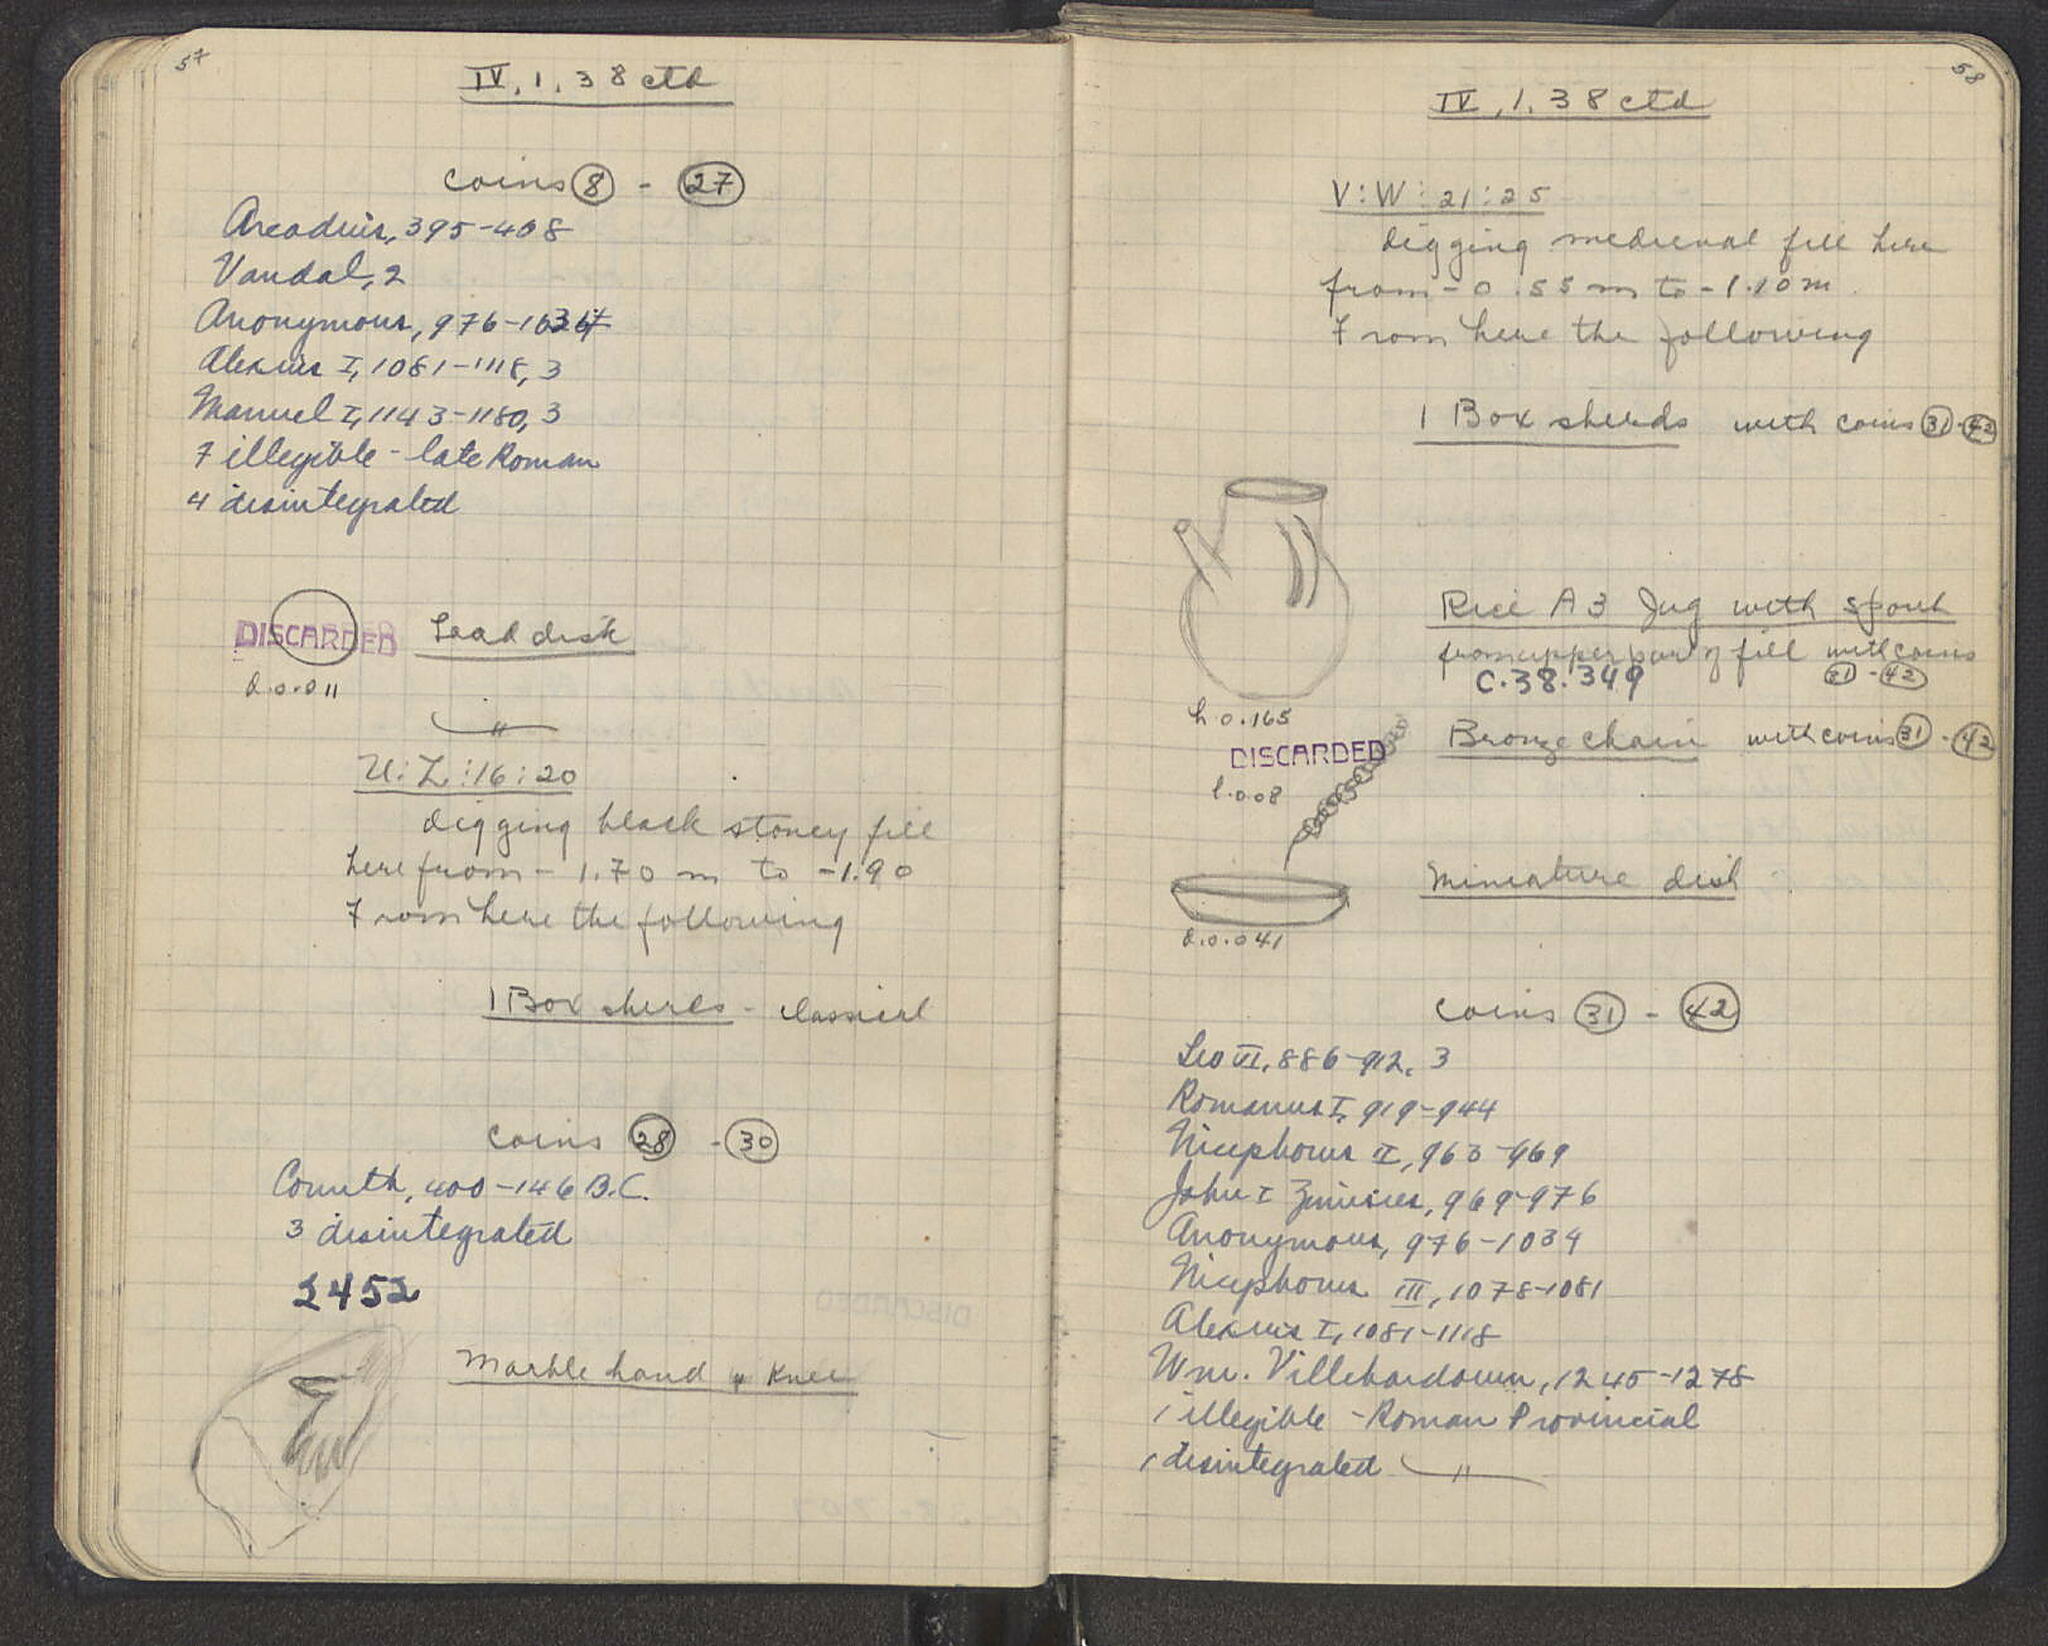 57
IV, 1, 38 ctd
coins 8 - 27
Arcadius, 395-408
Vandal, 2
Anonymous, 976-
Alexius I, 1081-1118, 3
Manuel I, 1143-1180, 3
7 illegible - late Roman
4 disintegrated
DISCARDED
Lead disk
d.0.011
"
U:Z:16:20
digging black stoney fill
here from - 1.70 m to -1.90
From here the following
1 Box sherds - classical
coins 28 - 30
Corinth, 400-146 B.C.
3 disintegrated
2452
Marble hand & Knee
58
IV, 1. 38 ctd
V:W:21:25
digging medieval fill here
from - 0.55 m to - 1.10 m.
From here the following
1 Box sherds with coins 31-42
Rice A3 Jug with spout
from upper part of fill with coins
31 - 42
C.38.349
h 0.165
DISCARDED
Bronze chain with coins 31 - 42
l.0.08
Miniature dish
d.0.041
coins 31 - 42
Leo VI, 886-912, 3
Romanus I, 919-944
Nicephorus II, 963-969
John I Zimisces, 969-976
Anonymous, 976-1034
Nicephorus III, 1078-1081
Alexius I, 1081-1118
Wm. Villehardouin, 1245-1278
1 illegible - Roman Provincial
1 disintegrated "